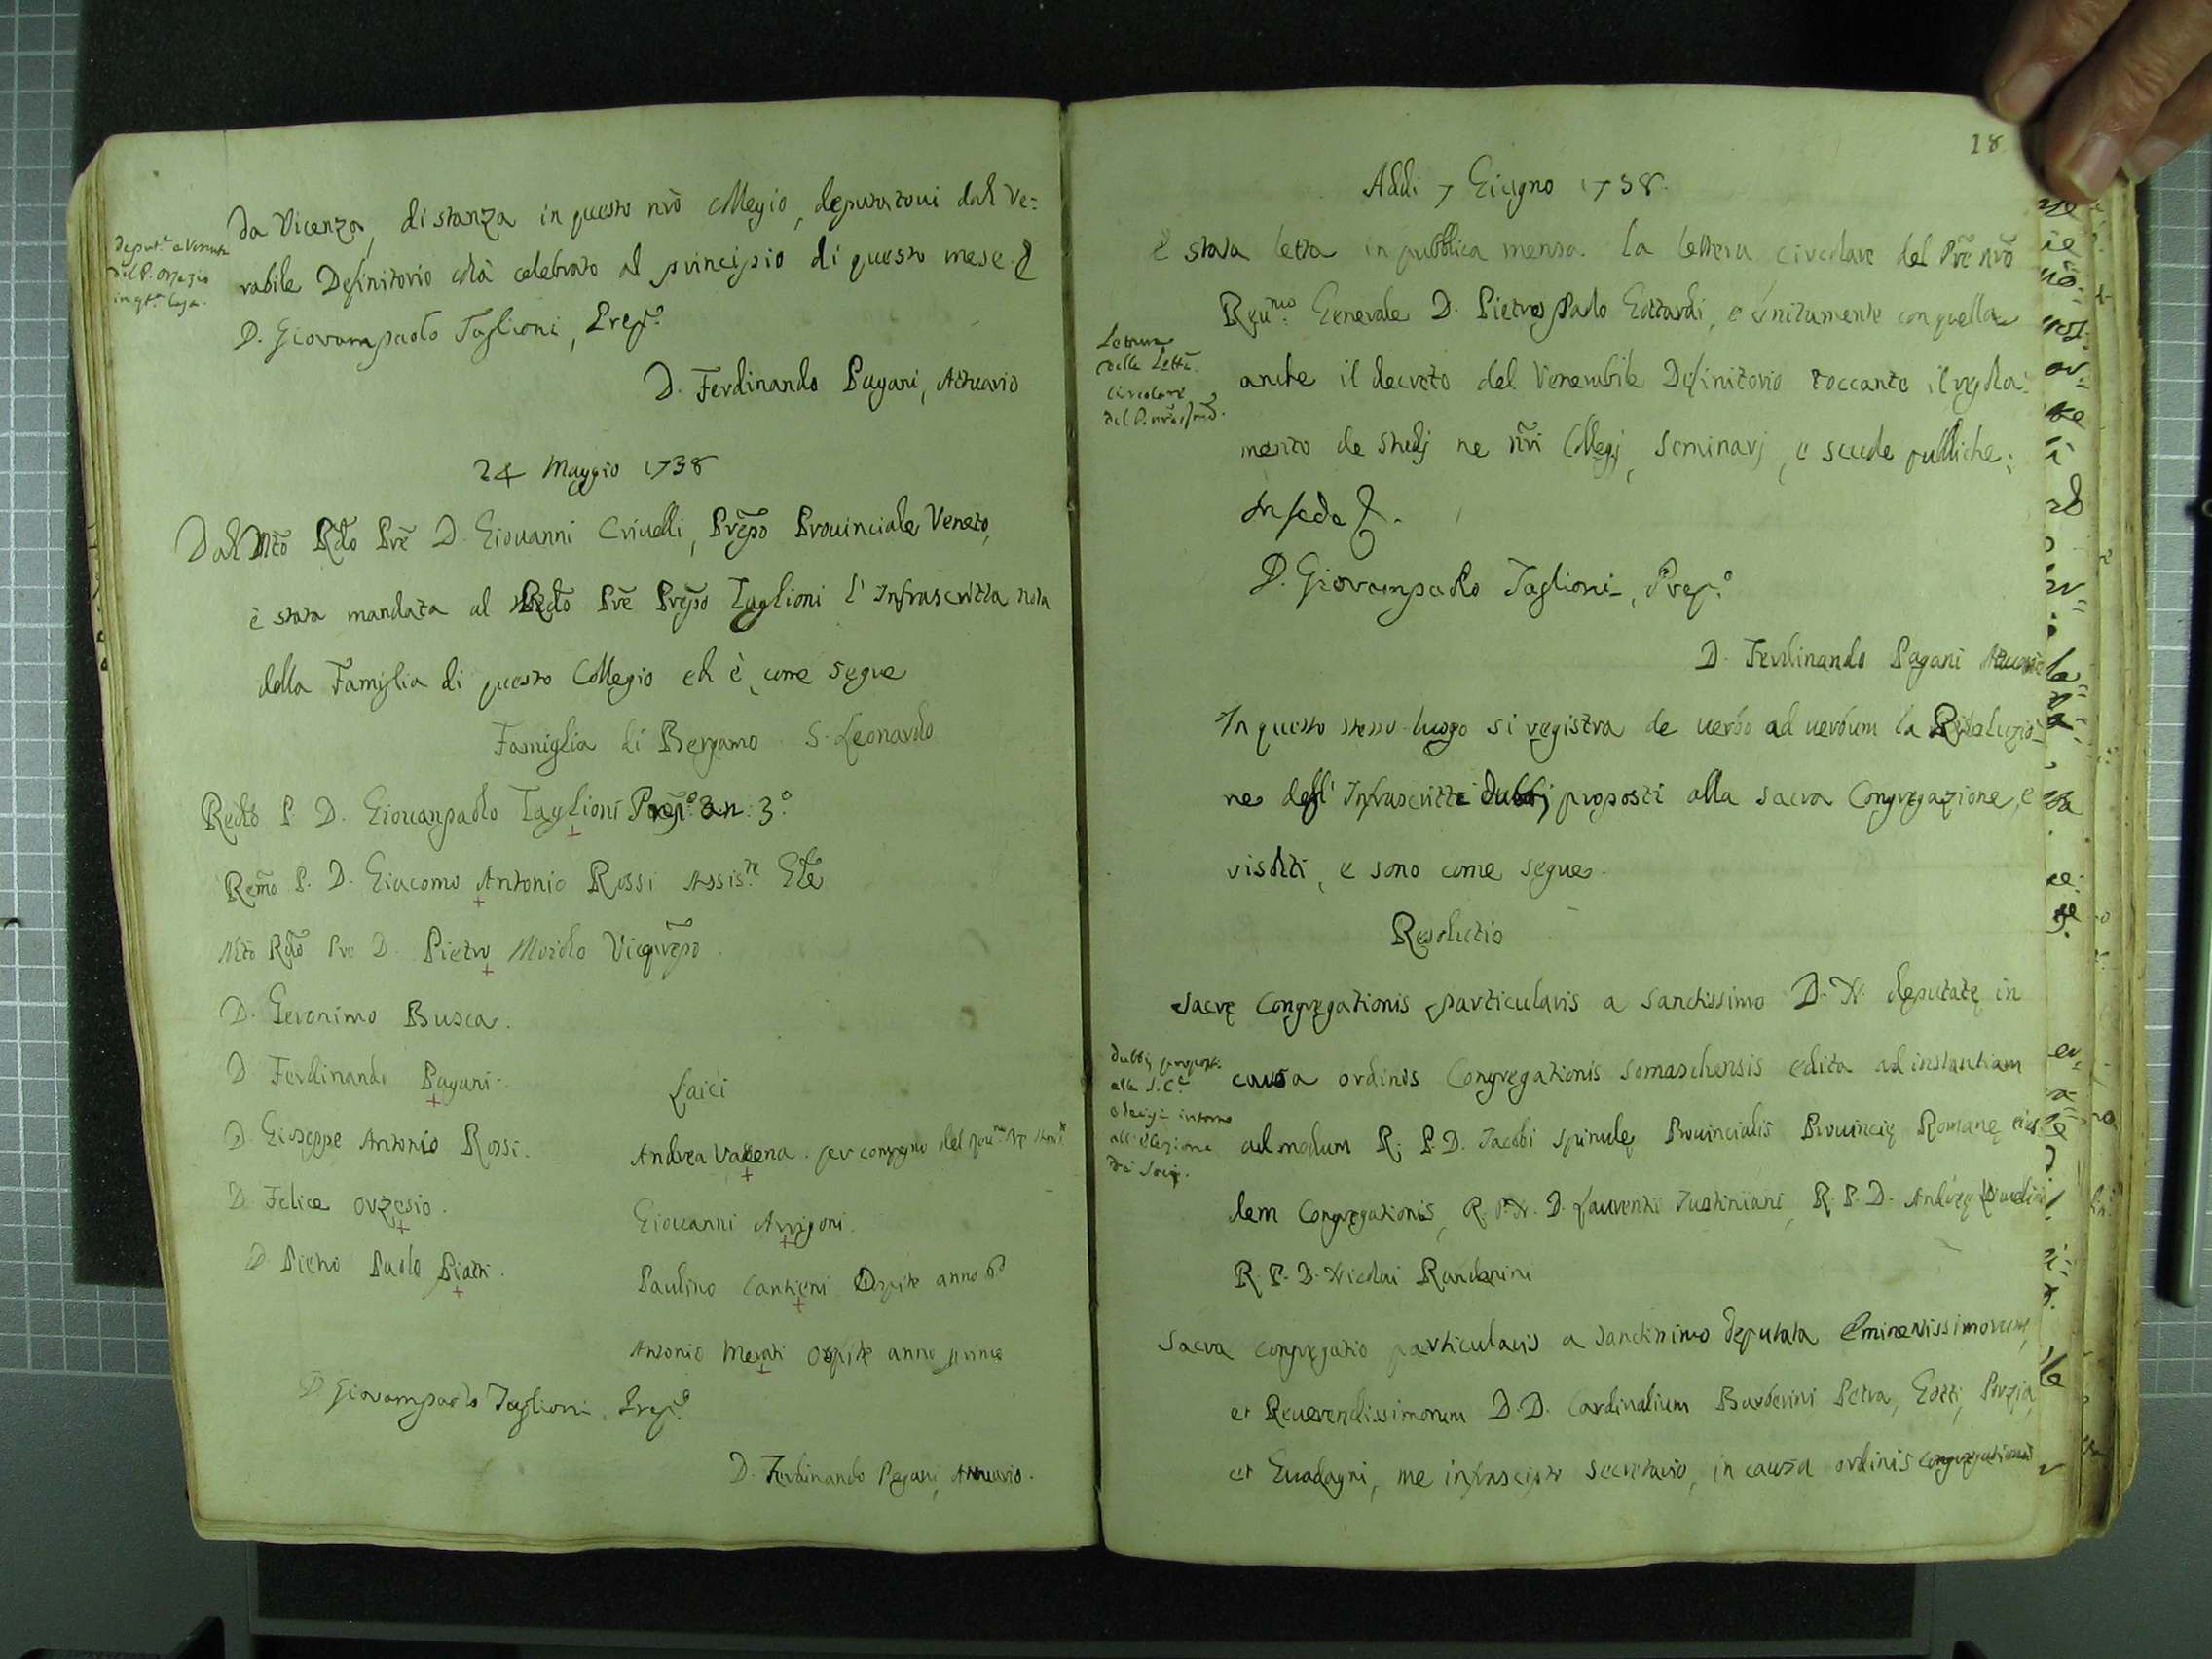 da Vicenza, di stanza in questo nrõ Collegio, deputatovi dal Ve=
rabile Definitorio colà celebrato al principio di questo mese
D. Giovampaolo Taglioni, Prep.°
D. Ferdinando Pagani, Attuario
in qt.ª Casa.
24 Maggio 1738
Dal Mtõ Rdõ Prẽ D. Giovanni Crivelli, Prẽpo Provinciale Veneto,
è stata mandata al Rdõ Prẽ Prẽpo Taglioni l'Infrascritta nota
della Famiglia di questo Collegio ed è, come segue
Famiglia di Bergamo S. Leonardo
Redo P. D. Giovanpaolo Taglioni Prep.° an: 3.°
Remõ P. D. Giacomo Antonio Rossi Assis.te Gle
Mtõ Rdõ Pre D. Pietro Morolo Viceprẽpo.
D. Geronimo Busca.
D Ferdinando Pagani.
D. Giuseppe Antonio Rossi.
D. Felice Orzesio.
D. Pietro Paolo Piatti.
Laici
Andrea Valsena. per compagno del
Giovanni Arrigoni.
Paulino Cantieni Ospite anno 6°
Antonio Merati Ospite anno primo
D. Giovampaolo Taglioni, Prep.°
D. Ferdinando Pagani, Attuario.
18
Addi 7 Giugno 1738.
È stata letta in pubblica mensa la lettera circolare del Prẽ nrõ
Reu.mo Generale D. Pietro Paolo Gottardi, e unitamente con quella
anche il decreto del Venerabile Definitorio toccante il regola=
mento de Studj ne nri Collegj, Seminarj, e scuole pubbliche;
In fede
Lettura
della Lettã.
circolare
D. Giovampaolo Taglioni, Prep.°
D. Ferdinando Pagani Attuario
In questo stesso luogo si registra de verbo ad verbum la Risoluzio=
ne degl'Infrascritti dubbj proposti alla Sacra Congregazione, e
risolti, e sono come segue.
Resolutio
Sacrę Congregationis particularis a Sanctissimo D. N. deputatę in
causa ordinis Congregationis Somaschensis edita ad instantiam
admodum R. P. D. Jacobi Spinulę Provincialis Provincię Romanę eius=
dem Congregationis, R. P. N. D. Laurentii Justiniani, R. P. D. Andręę
R. P. D. Nicolai Rondanini
dubbj propost.
alla S. C.ª
e decisi intorno
all'elezione
de Socj.
Sacra congregatio particularis a Sanctissimo deputata Eminentissimorum,
et Reverendissimorum D.D. Cardinalium Barberini Petra, Gotti, Porzia,
et Guadagni, me infrascripto secretario, in causa ordinis congregationis